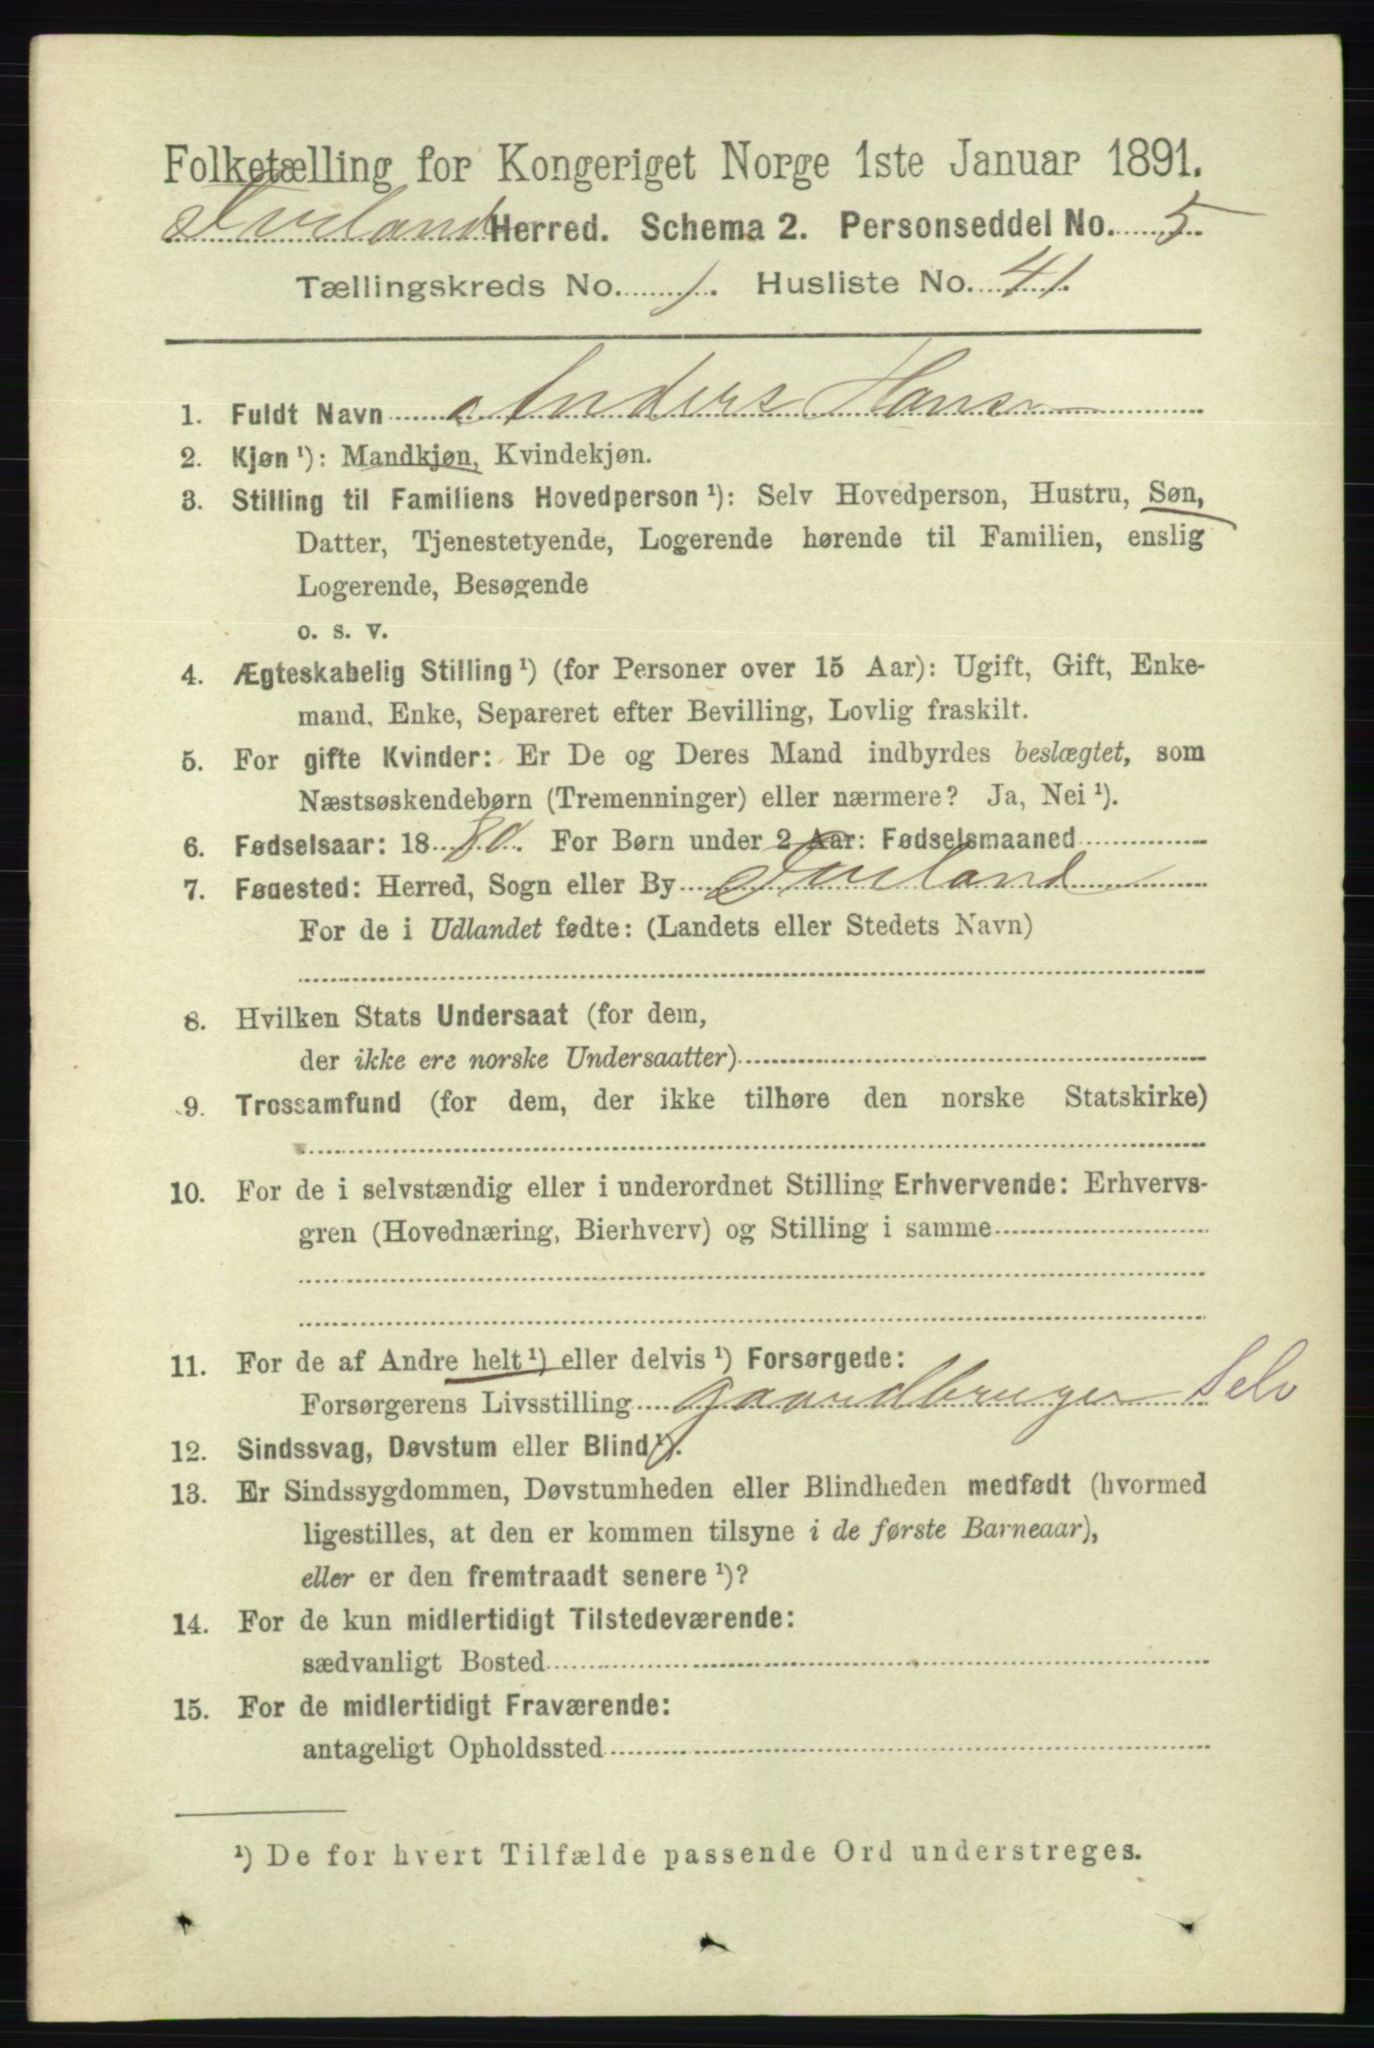 Folketælling for Kongeriget Norge 1ste Januar 1891.
Iveland Herred. Schema 2. Personseddel No. 5.
Tællingskreds No. 1. Husliste No. 41.
1. Fuldt Navn Anders Hans
2. Kjøn ¹): Mandkjøn, Kvindekjøn.
3. Stilling til Familiens Hovedperson ¹): Selv Hovedperson, Hustru, Søn,
Datter, Tjenestetyende, Logerende hørende til Familien, enslig
Logerende, Besøgende
o. s. v.
4. Ægteskabelig Stilling ¹) (for Personer over 15 Aar): Ugift, Gift, Enke-
mand, Enke, Separeret efter Bevilling, Lovlig fraskilt.
5. For gifte Kvinder: Er De og Deres Mand indbyrdes beslægtet, som
Næstsøskendebørn (Tremenninger) eller nærmere? Ja, Nei ¹).
6. Fødselsaar: 1880. For Børn under 2 Aar: Fødselsmaaned
7. Fødested: Herred, Sogn eller By Iveland
For de i Udlandet fødte: (Landets eller Stedets Navn)
8. Hvilken Stats Undersaat (for dem,
der ikke ere norske Undersaatter)
9. Trossamfund (for dem, der ikke tilhøre den norske Statskirke)
10. For de i selvstændig eller i underordnet Stilling Erhvervende: Erhvervs-
gren (Hovednæring, Bierhverv) og Stilling i samme
11. For de af Andre helt ¹) eller delvis ¹) Forsørgede:
Forsørgerens Livsstilling gaardbruger Selv
12. Sindssvag, Døvstum eller Blind ¹).
13. Er Sindssygdommen, Døvstumheden eller Blindheden medfødt (hvormed
ligestilles, at den er kommen tilsyne i de første Barneaar),
eller er den fremtraadt senere ¹)?
14. For de kun midlertidigt Tilstedeværende:
sædvanligt Bosted
15. For de midlertidigt Fraværende:
antageligt Opholdssted
¹) De for hvert Tilfælde passende Ord understreges.